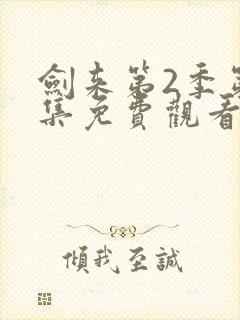 劍来第2季第
集免費觀看
傾我至誠